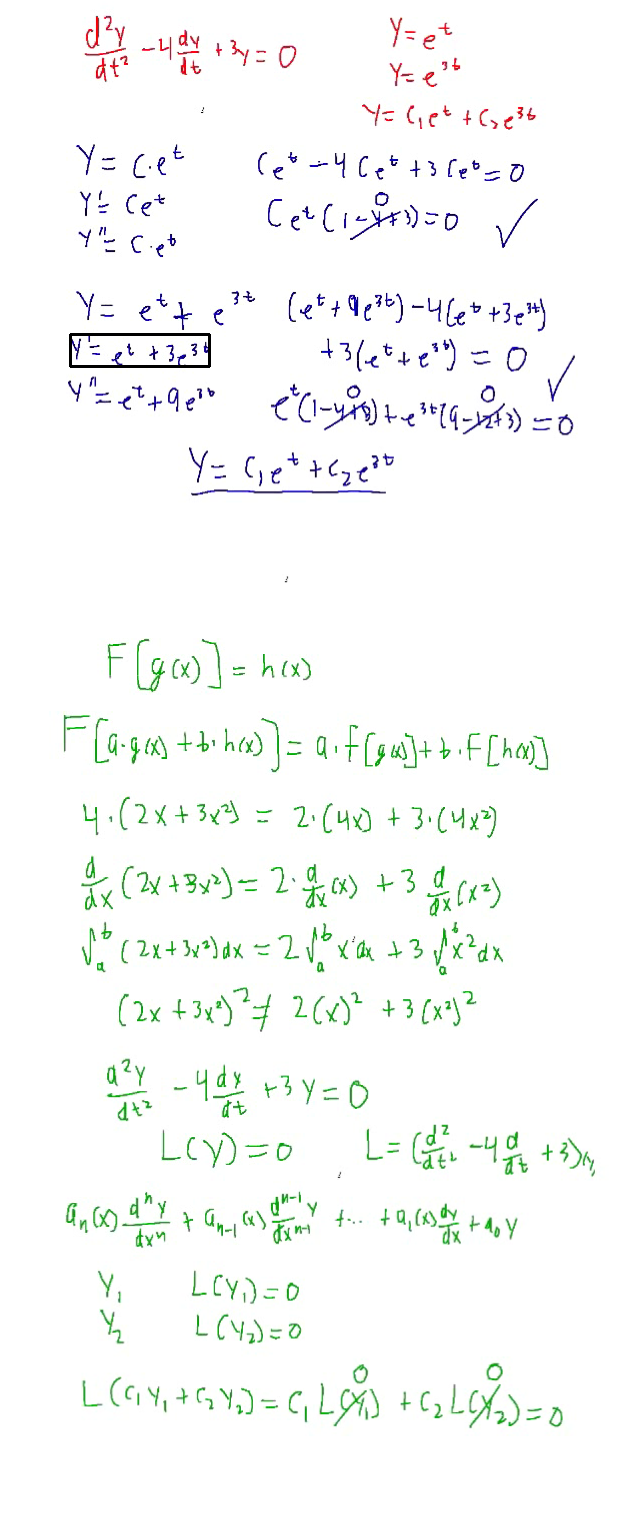 d²y/dt² - 4 dy/dt + 3y = 0
y = e^t
y = e^{3t}
y = C₁e^t + C₂e^{3t}
y = C·e^t
y' = Ce^t
y'' = C·e^t
Ce^t - 4Ce^t + 3Ce^t = 0
Ce^t(1-4+3) = 0 ✓
0
y = e^t + e^{3t}
y' = e^t + 3e^{3t}
y'' = e^t + 9e^{3t}
(e^t + 9e^{3t}) - 4(e^t + 3e^{3t})
+ 3(e^t + e^{3t}) = 0 ✓
0 0
e^t(1-4+3) + e^{3t}(9-12+3) = 0
y = C₁e^t + C₂e^{3t}
F[g(x)] = h(x)
F[a·g(x) + b·h(x)] = a·F[g(x)] + b·F[h(x)]
4·(2x + 3x²) = 2·(4x) + 3·(4x²)
d/dx (2x + 3x²) = 2·d/dx (x) + 3 d/dx (x²)
∫_a^b (2x + 3x²)dx = 2∫_a^b x dx + 3∫_a^b x² dx
(2x + 3x²)² ≠ 2(x)² + 3(x²)²
d²y/dt² - 4 dy/dt + 3y = 0
L(y) = 0 L = (d²/dt² - 4 d/dt + 3)
a_n(x) d^n y/dx^n + a_{n-1}(x) d^{n-1}y/dx^{n-1} + ... + a₁(x) dy/dx + a₀y
y₁ L(y₁) = 0
y₂ L(y₂) = 0
0 0
L(C₁y₁ + C₂y₂) = C₁L(y₁) + C₂L(y₂) = 0